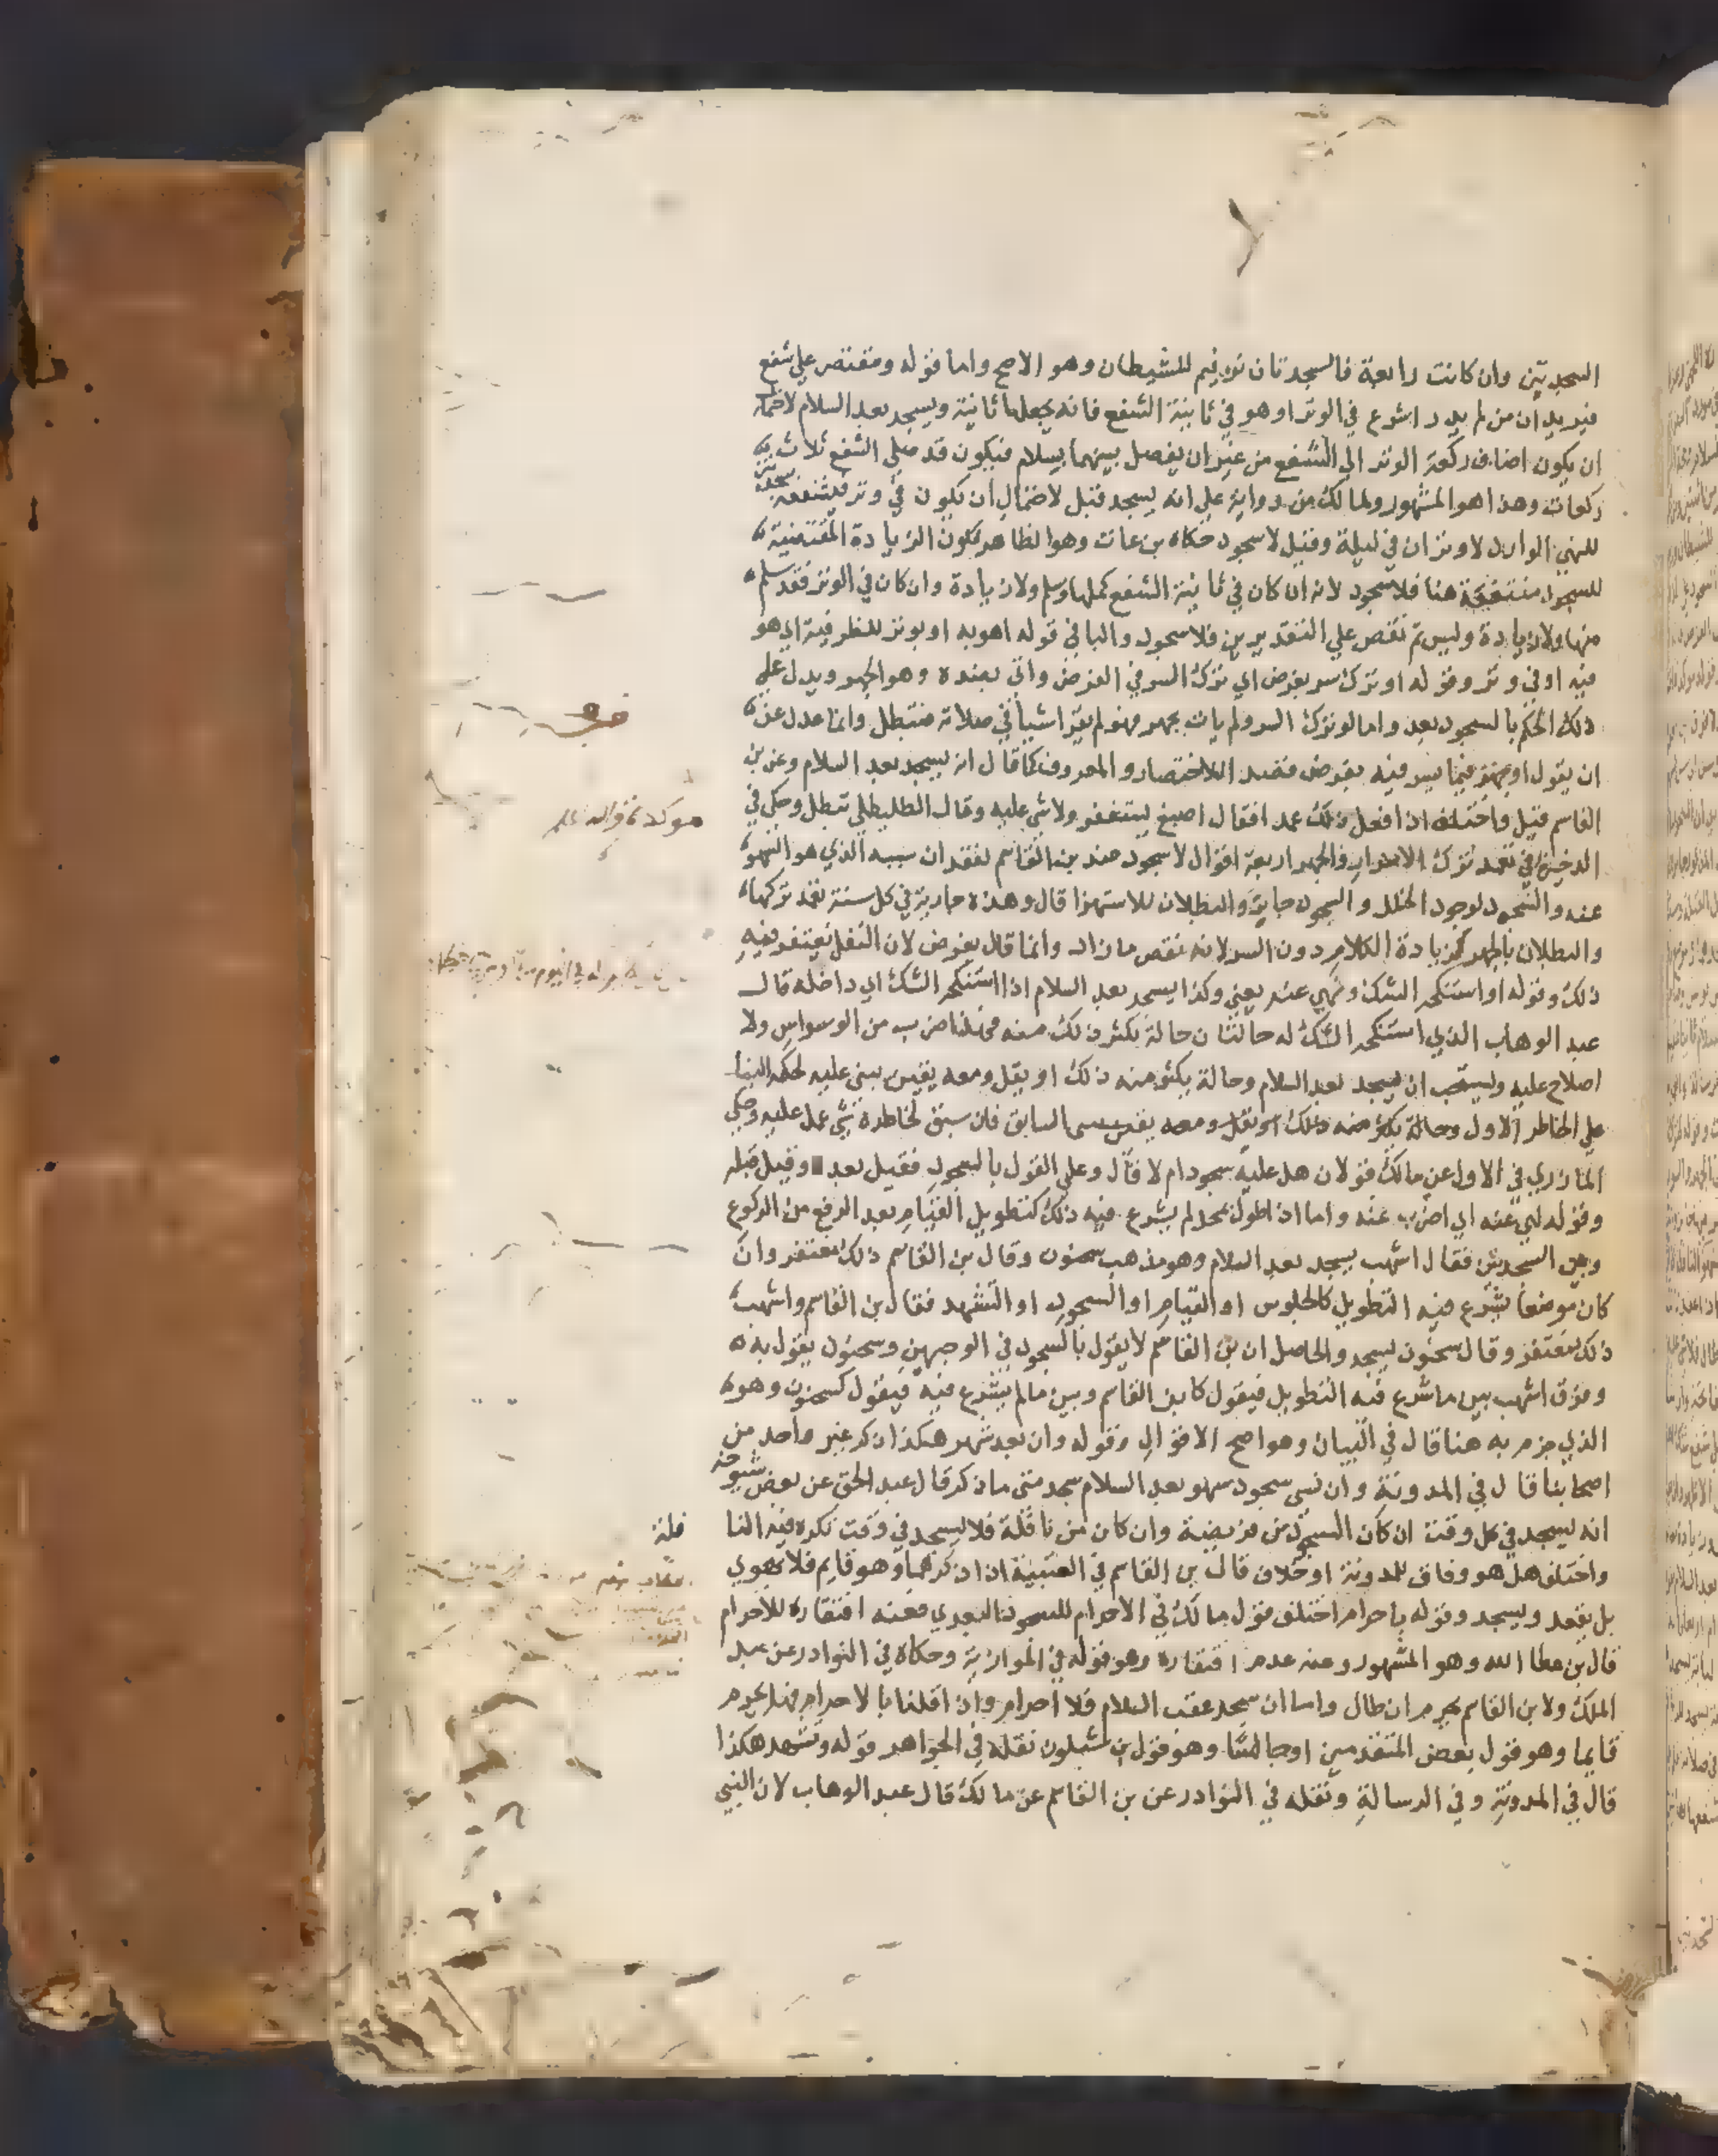 السجدتين وان كانت رابعة فالسجدتان ترغيم للشيطان وهو الاصح واما قوله ومقتصر علي شفع
فيريد ان من لم يدر اشرع في الوتر او هو في ثانية الشفع فانه يجعلها ثانية ويسجد بعد السلام لاحتمال
ان يكون اضاف ركعة الوتر الي الشفع من غير ان يفصل بينهما بسلام فيكون قد صلي الشفع ثلاث
ركعات وهذا هو المشهور ولمالك من رواية علي انه يسجد قبل لاحتمال ان يكون في وتر فيشفعه بسجدتين
للنهي الوارد لا وتران في ليلة وقيل لا سجود حكاه بن عات وهو الظاهر لكون الزيادة المقتضية
للسجود منتفية هنا فلا سجود لانه ان كان في ثانية الشفع كملها وسلم ولا زيادة وان كان في الوتر فقد سلم
منها ولا زيادة وليس ثم نقص علي التقديرين فلا سجود والبا في قوله اهو به او بوتر للظرفية اي هو
فيه او في وتر وقوله او ترك سر بفرض اي ترك السر في الفرض واتي بضده وهو الجهر ويدل عليه
ذلك الحكم بالسجود بعد واما لو ترك السر ولم يات بجهر فهو لم يقرا شيا في صلاته فتبطل وانما عدل عن
ان يقول او جهر فيما يسر فيه بفرض قصد للاختصار والمعروف كما قال انه يسجد بعد السلام وعن بن
القاسم قبل واختلف اذا فعل ذلك عمدا فقال اصبغ يستغفر ولا شي عليه وقال الطليطلي تبطل وحكي في
الذخيرة في تعمد ترك الاسرار والجهر اربعة اقوال لا سجود عند بن القاسم لفقدان سببه الذي هو السهو
عنه والسجود لوجود الخلل والسجود جابر والبطلان للاستهزا قال وهذه جارية في كل سنة تعمد تركها
والبطلان بالجهر لزيادة الكلام دون السر لانه نقص ما زاد وانما قال بفرض لان النفل يغتفر فيه
ذلك وقوله او استنكحه الشك ولهي عنه يعني وكذا يسجد بعد السلام اذا استنكحه الشك اي داخله قال
عبد الوهاب الذي استنكحه الشك له حالتان حالة يكثر ذلك منه فهذا ضرب من الوسواس ولا
اصلاح عليه ويستحب ان يسجد بعد السلام وحالة يكثر منه ذلك او يقل ومعه يقين يبني عليه لحكم البنا
علي الخاطر الاول وحالة يكثر منه ذلك او يقل ومعه يقين السابق فان سبق لخاطره شي عمل عليه وحكي
المازري في الاول عن مالك قولان هل عليه سجود ام لا قال وعلي القول بالسجود فقيل بعد وقيل قبل
وقوله لهي عنه اي اضرب عنه واما اذا طول بمحل لم يشرع فيه ذلك كتطويل القيام بعد الرفع من الركوع
وبين السجدتين فقال اشهب يسجد بعد السلام وهو مذهب سحنون وقال بن القاسم ذلك مغتفر وان
كان موضعا يشرع فيه التطويل كالجلوس او القيام او السجود او التشهد فقال بن القاسم واشهب
ذلك مغتفر وقال سحنون يسجد والحاصل ان بن القاسم لا يقول بالسجود في الوجهين وسحنون يقول به
وفرق اشهب بين ما شرع فيه التطويل فيقول كابن القاسم وبين ما لم يشرع فيه فيقول كسحنون وهو
الذي جزم به هنا قال في البيان وهو اصح الاقوال وقوله وان بعد شهر هكذا ذكر غير واحد من
اصحابنا قال في المدونة وان نسي سجود سهو بعد السلام سجد متى ما ذكر قال عبد الحق عن بعض شيوخه
انه يسجد في كل وقت ان كان السجود من فريضة وان كان من نافلة فلا يسجد في وقت تكره فيه النا
فلة
واختلف هل هو وفاق للمدونة او خلاف قال بن القاسم في العتبية اذا ذكرهما وهو قايم فلا يهوي
بل يقعد ويسجد وقوله باحرام اختلف قول مالك في الاحرام للسجود البعدي فعنه افتقاره للاحرام
قال بن عطا الله وهو المشهور وعنه عدم افتقاره وهو قوله في الموازية وحكاه في النوادر عن عبد
الملك ولابن القاسم يحرم ان طال واما ان سجد عقب السلام فلا احرام وان قلنا بالاحرام فهل يحرم
قايما وهو قول بعض المتقدمين او جالسا وهو قول بن شبلون نقله في الجواهر قوله وتشهد هكذا
قال في المدونة وفي الرسالة ونقله في النوادر عن بن القاسم عن مالك قال عبد الوهاب لان النبي